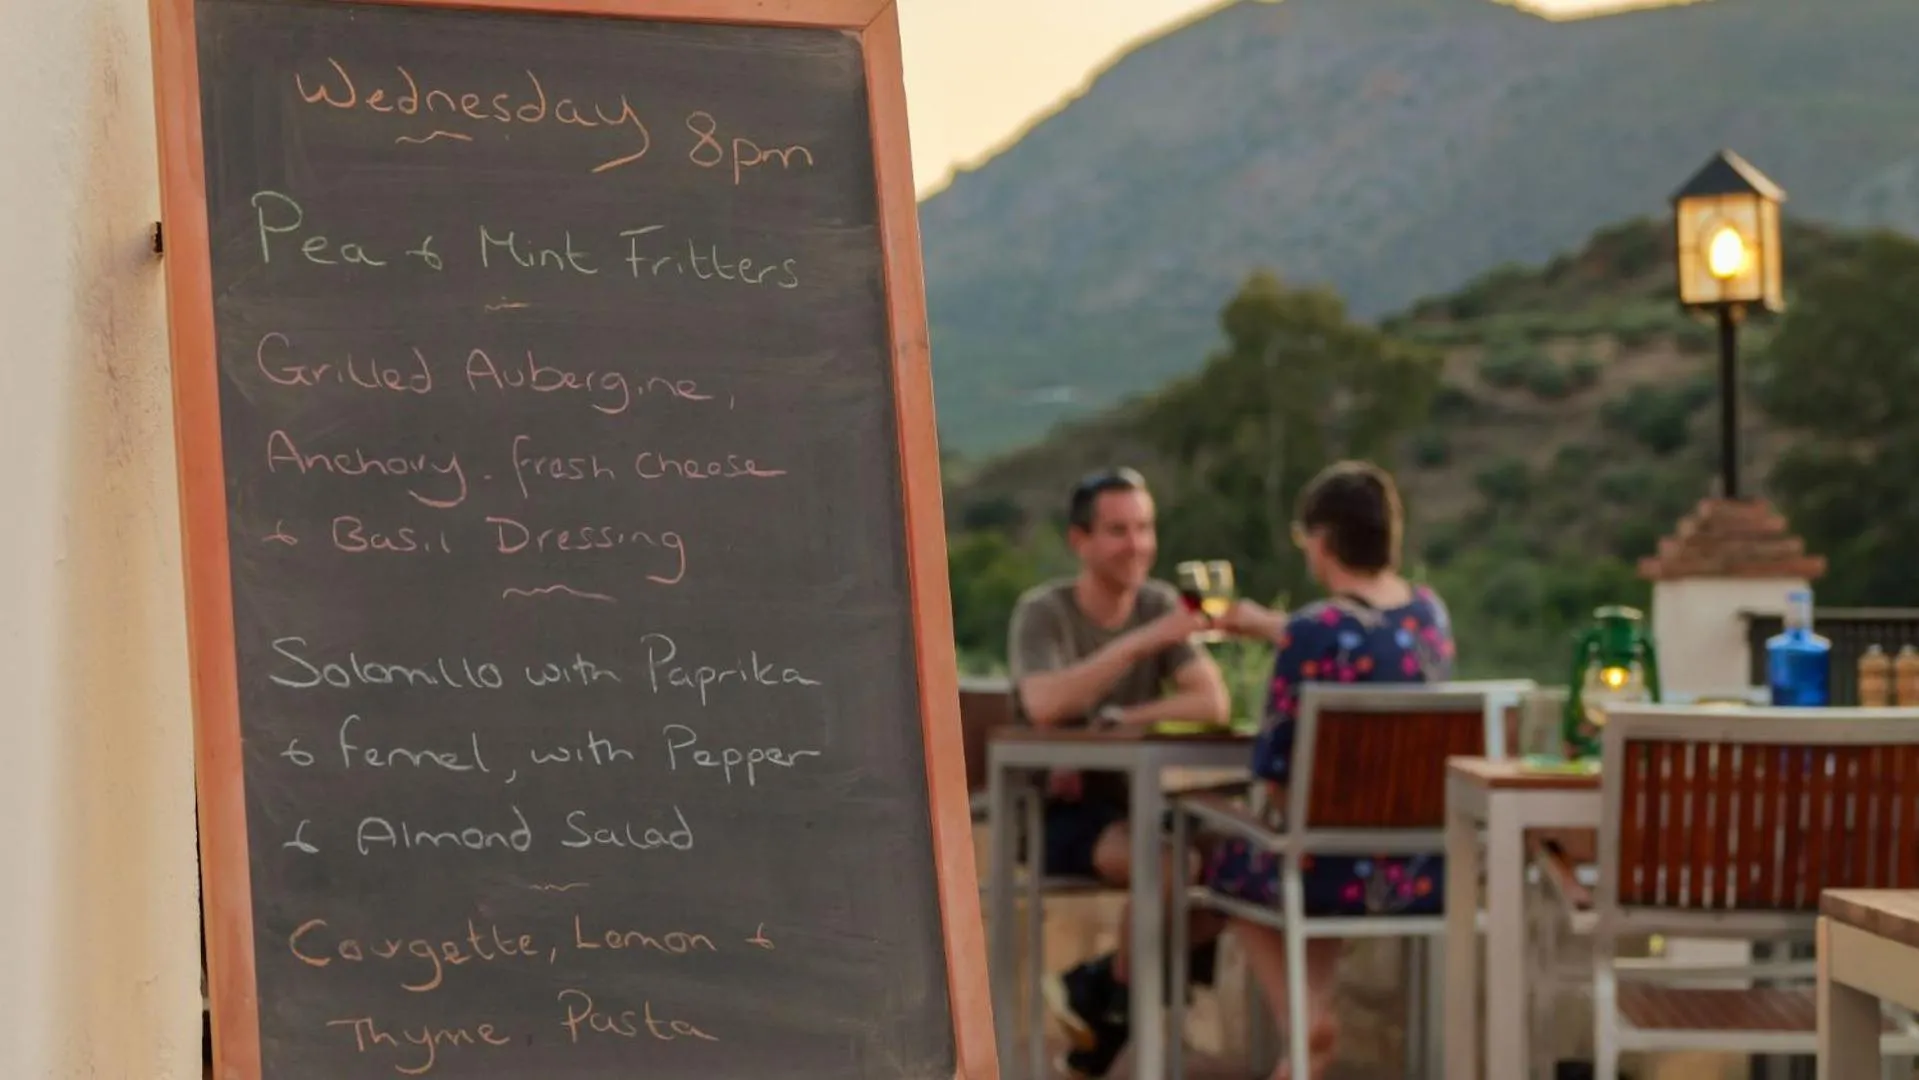 Wednesday 8pm
Pea & Mint Fritters
Grilled Aubergine,
Anchovy. fresh cheese
& Basil Dressing
Solomillo with Paprika
& fennel, with Pepper
& Almond Salad
Courgette, Lemon &
Thyme Pasta